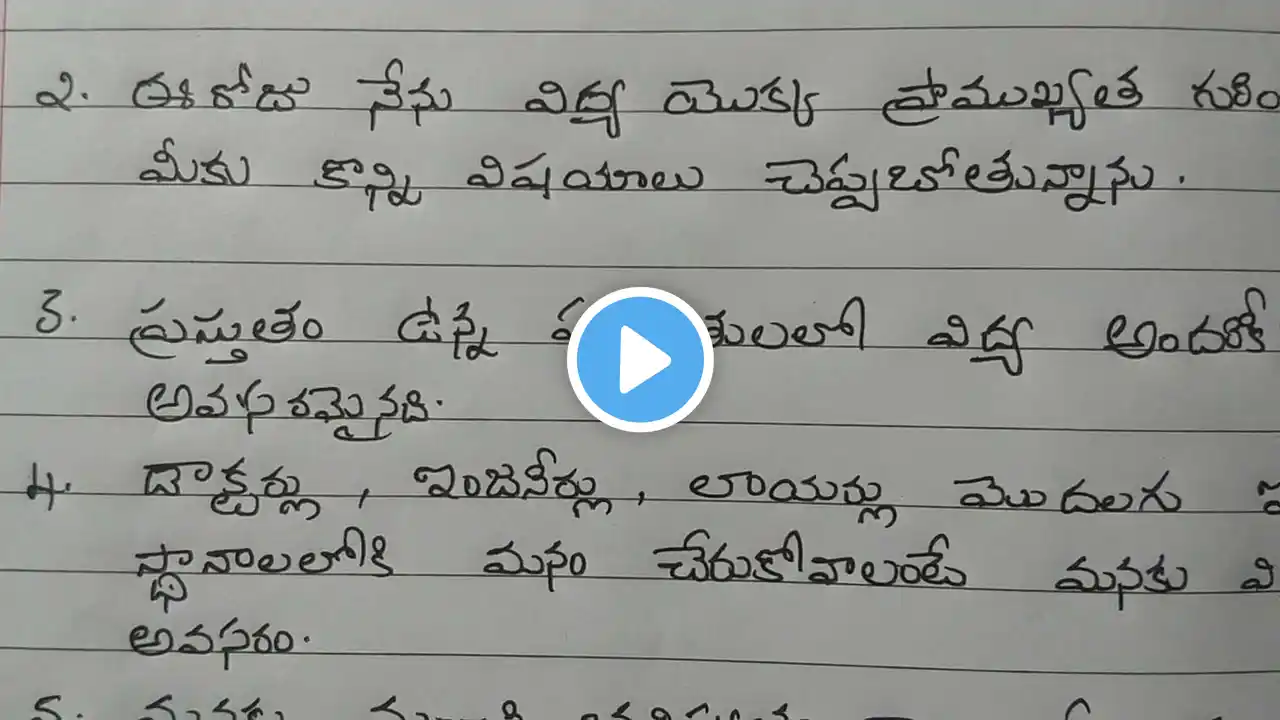 2. ఈ రోజు నేను విద్య యొక్క ప్రాముఖ్యత గురిం
మీకు కొన్ని విషయాలు చెప్పబోతున్నాను.
3. ప్రస్తుతం ఉన్న తులలో విద్య అందరికీ
అవసరమైనది.
4. డాక్టర్లు, ఇంజనీర్లు, లాయర్లు మొదలగు
స్థానాలలోకి మనం చేరుకోవాలంటే మనకు వి
అవసరం.
5. మనకు